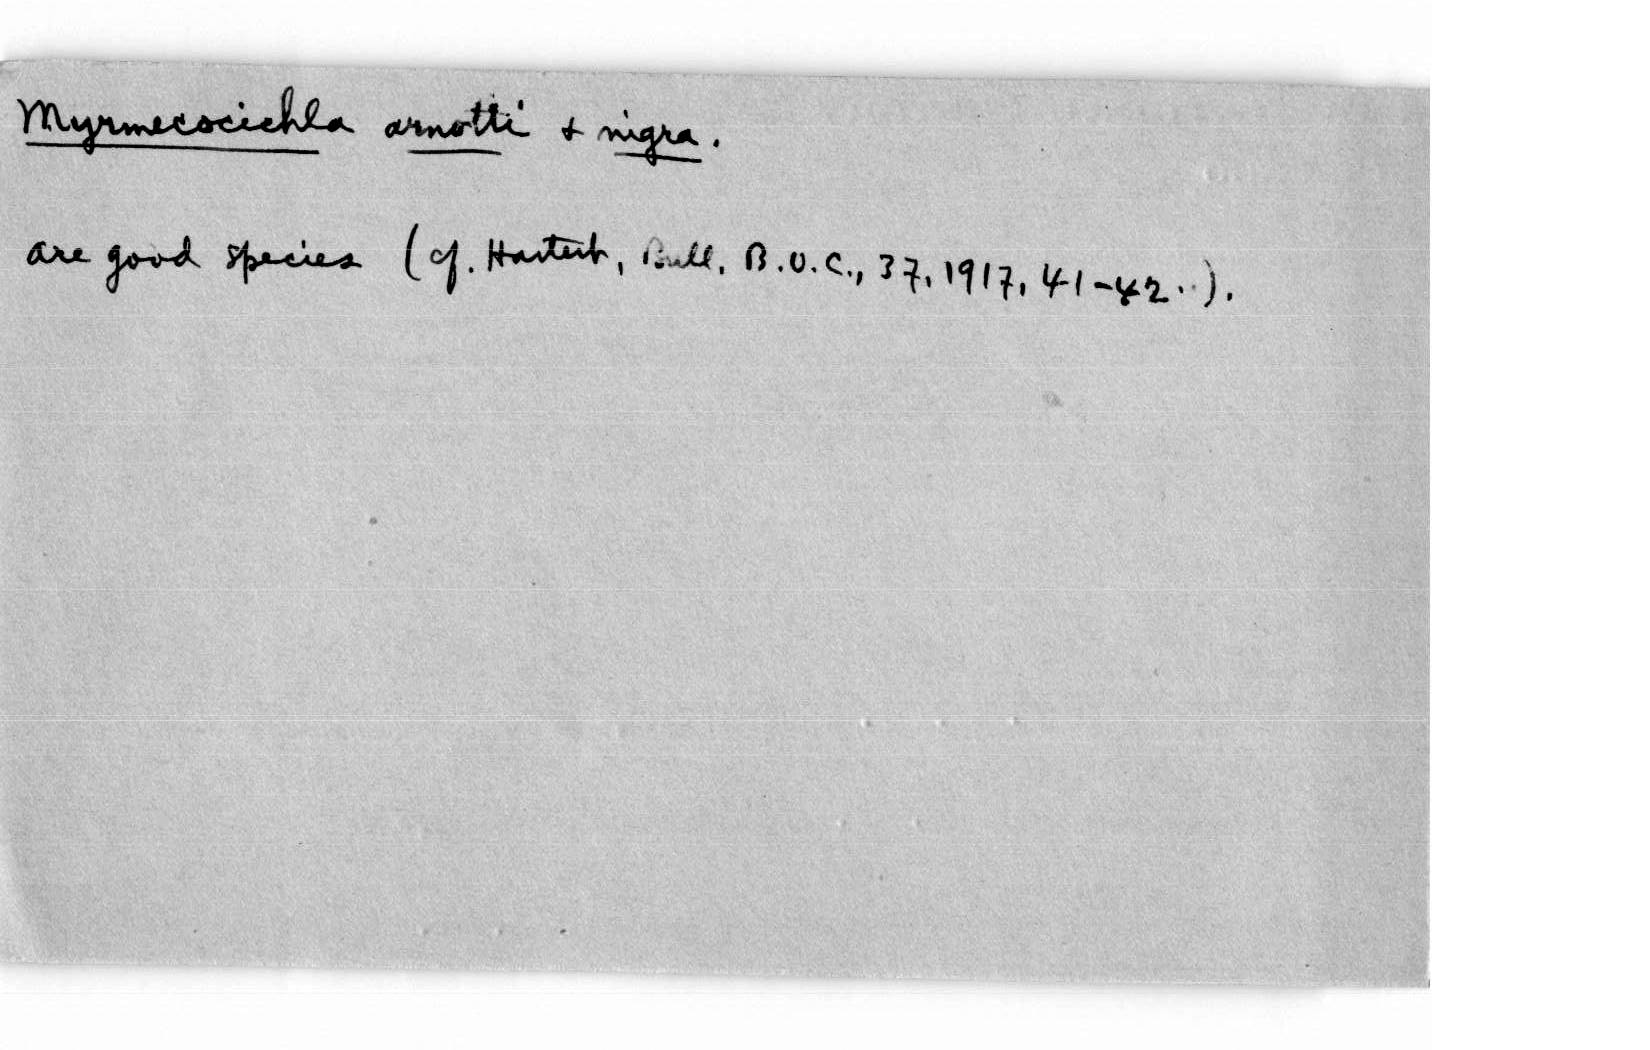 Myrmecocichla arnotti + nigra.
are good species (cf. Hartert, Bull. B.O.C., 37, 1917, 41-42..).